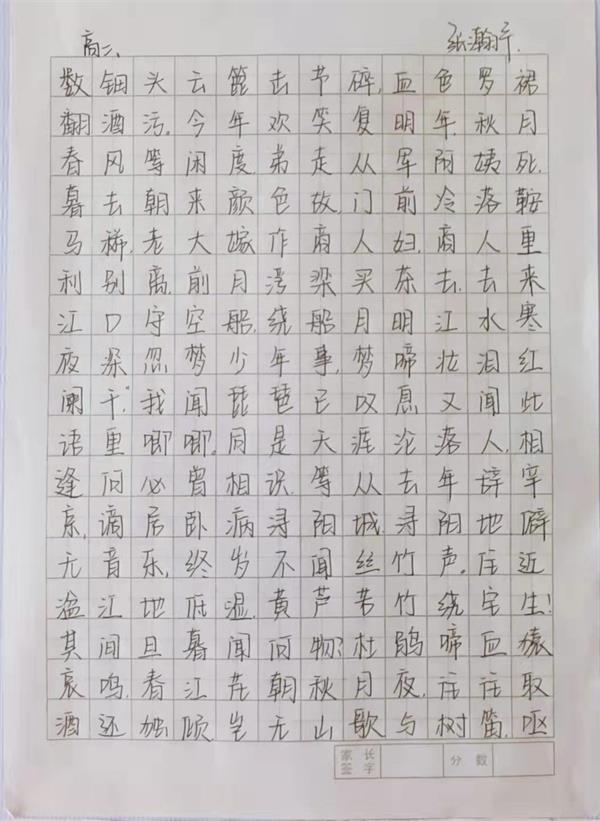 高二、 张瀚予.
数钿头云篦击节碎,血色罗裙
翻酒污,今年欢笑复明年,秋月
春风等闲度.弟走从军阿姨死,
暮去朝来颜色故,门前冷落鞍
马稀.老大嫁作商人妇,商人重
利别离,前月浮梁买茶去.去来
江口守空船,绕船月明江水寒
夜深忽梦少年事,梦啼妆泪红
阑干."我闻琵琶已叹息又闻此
语重唧唧.同是天涯沦落人,相
逢何必曾相识.等从去年辞
京,谪居卧病浔阳城.浔阳地僻
无音乐,终岁不闻丝竹声.住近
湓江地低湿,黄芦苦竹绕宅生!
其间旦暮闻何物?杜鹃啼血猿
哀鸣,春江花朝秋月夜,往往取
酒还独倾.岂无山歌与树笛,呕
家长签字 分数